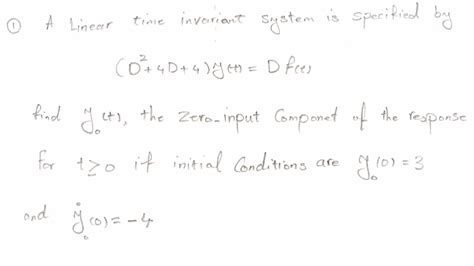 ① A Linear time invariant system is specified by
(D²+4D+4)y(t) = D f(t)
find y₀(t), the Zero-input Componet of the response
for t≥0 if initial Conditions are y₀(0)=3
and ẏ₀(0)=-4